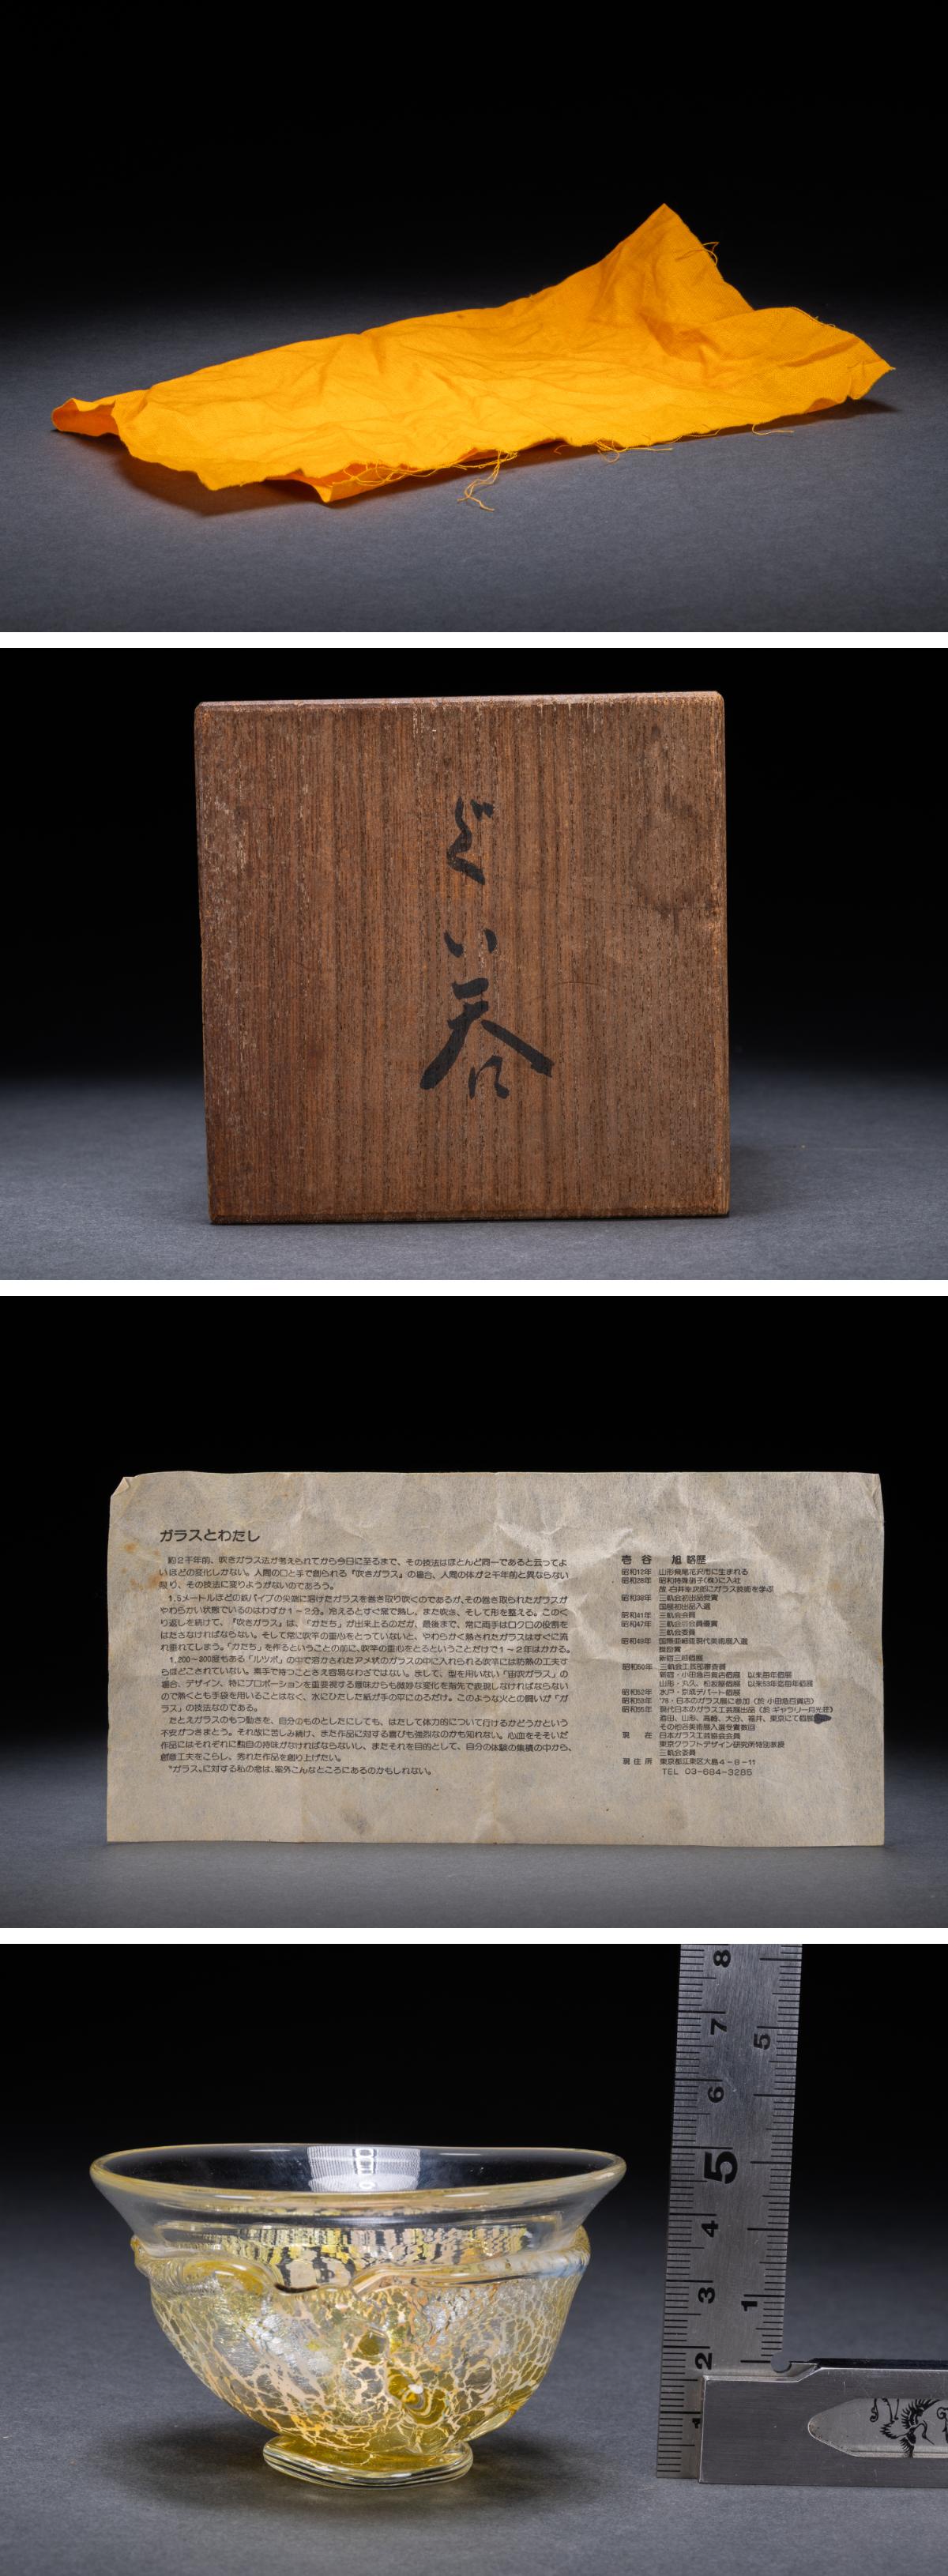 ぐい呑
ガラスとわたし
約2千年前、吹きガラス法が考えられてから今日に至るまで、その技法はほとんど同一であると云ってよ
いほどの変化しかない。人間の口と手で創られる『吹きガラス』の場合、人間の体が2千年前と異ならない
限り、その技法に変りようがないのであろう。
1.5メートルほどの鉄パイプの尖端に溶けたガラスを巻き取り吹くのであるが、その巻き取られたガラスが
やわらかい状態でいるのはわずか1〜2分。冷えるとすぐ窯で熱し、また吹き、そして形を整える。このく
り返しを続けて、『吹きガラス』は、「かたち」が出来上るのだが、最後まで、常に両手はロクロの役割を
はたさなければならない。そして常に吹竿の重心をとっていないと、やわらかく熱されたガラスはすぐに流
れ垂れてしまう。「かたち」を作るということの前に、吹竿の重心をとるということだけで1〜2年はかかる。
1,200〜300度もある「ルツボ」の中で溶かされたアメ状のガラスの中に入れられる吹竿には防熱の工夫す
らほどこされていない。素手で持つことさえ容易なわざではない。まして、型を用いない「宙吹ガラス」の
場合、デザイン、特にプロポーションを重要視する意味からも微妙な変化を指先で表現しなければならない
ので熱くとも手袋を用いることはなく、水にひたした紙が手の平にのるだけ。このような火との闘いが「ガ
ラス」の技法なのである。
たとえガラスのもつ動きを、自分のものとしたにしても、はたして体力的について行けるかどうかという
不安がつきまとう。それ故に苦しみ続け、また作品に対する喜びも強烈なのかも知れない。心血をそそいだ
作品にはそれぞれに独自の持味がなければならないし、またそれを目的として、自分の体験の集積の中から、
創意工夫をこらし、秀れた作品を創り上げたい。
“ガラス”に対する私の念は、案外こんなところにあるのかもしれない。
壱谷 旭 略歴
昭和12年 山形県尾花沢市に生まれる
昭和28年 昭和特殊硝子(株)に入社
故 石井幸次郎にガラス技術を学ぶ
昭和38年 三軌会初出品受賞
国展初出品入選
昭和41年 三軌会会員
昭和47年 三軌会会員優賞
三軌会委員
昭和49年
新宿三越個展
昭和50年 三軌会工芸部審査員
新宿・小田急百貨店個展 以来毎年個展
山形・丸久、松坂屋個展 以来53年迄毎年個展
昭和52年 水戸・京成デパート個展
昭和53年 '78・日本のガラス展に参加(於 小田急百貨店)
昭和55年 現代日本のガラス工芸展出品(於 ギャラリー月光荘)
酒田、山形、高崎、大分、福井、東京にて個展
その他各美術展入選受賞数回
現 在 日本ガラス工芸協会会員
東京クラフトデザイン研究所特別教授
三軌会委員
現住所 東京都江東区大島4-8-11
TEL 03-684-3285
8
7
6
5
4
3
2
1
5
1